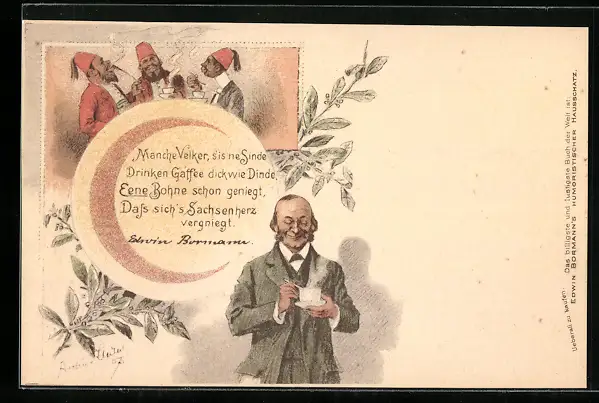 Manche Velker, s'is ne Sinde
Drinken Gaffee dick wie Dinde,
Eene Bohne schon geniegt,
Daſs sich's Sachsenherz
vergniegt.
Edwin Bormann.
Ueberall zu kaufen: Das billigste und lustigste Buch der Welt ist:
EDWIN BORMANN'S HUMORISTISCHER HAUSSCHATZ.